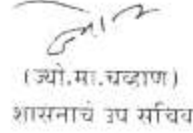 (ज्यो.मा.चव्हाण)
शासनाचे उप सचिव